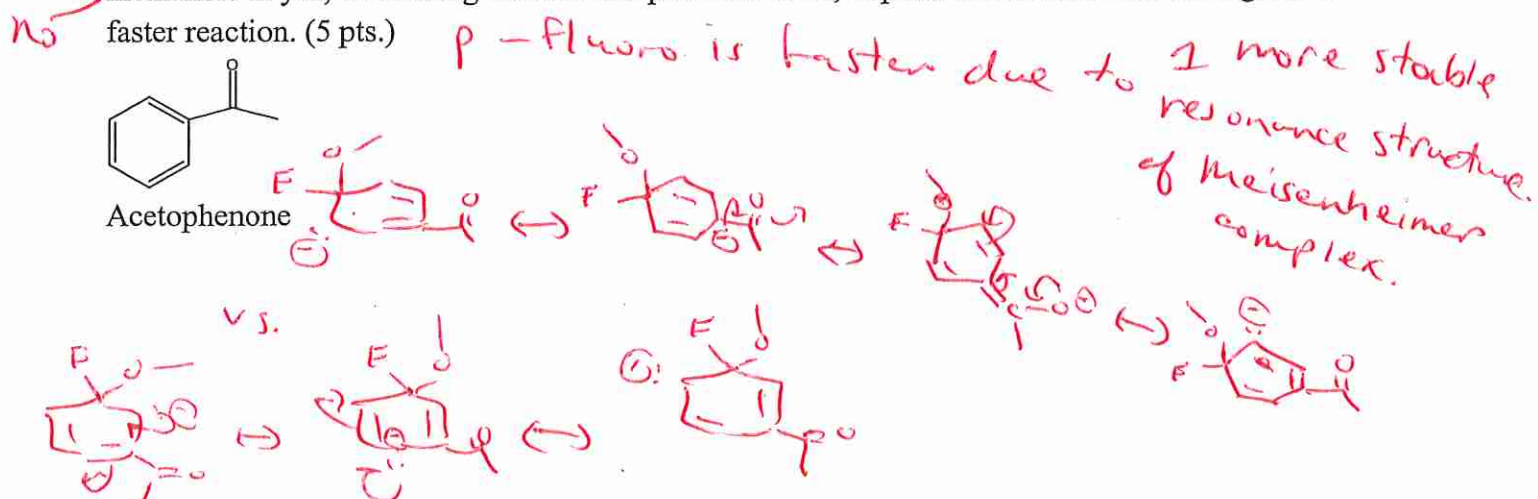 no
faster reaction. (5 pts.)
p-fluoro is faster due to 1 more stable
resonance structure
of Meisenheimer
complex.
Acetophenone
O
O
F
O
O
F
O
O
F
C
O
O
F
O
vs.
F
O
O
F
O
F
O
O